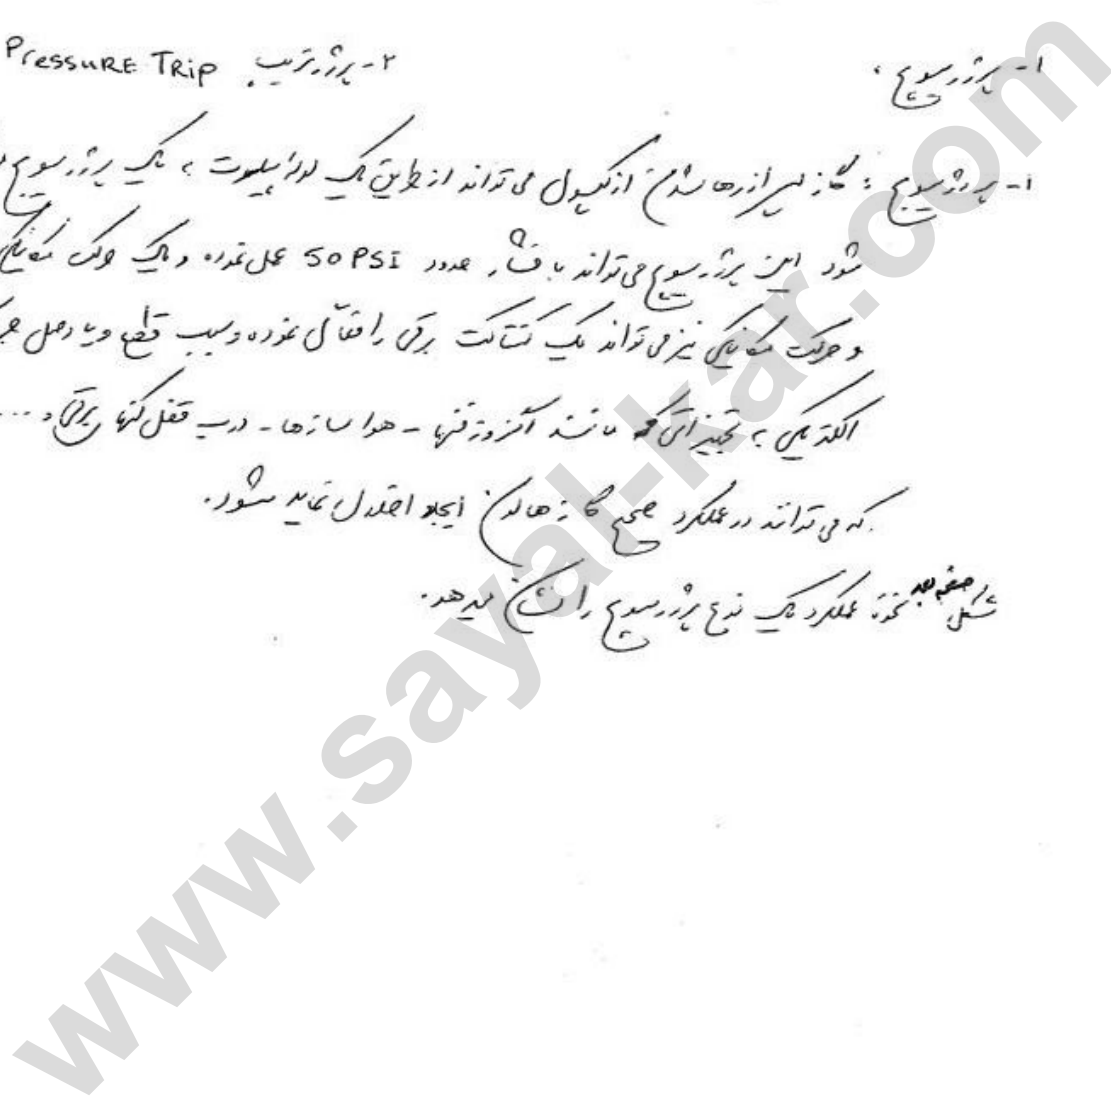 ۱- پرژر سویچ . ۲- پرژر تریپ Pressure Trip
۱- پرژر سویچ : گاز پس از رها شدن از کپسول می تواند از طریق یک لوله پیلوت به یک پرژر سویچ
شود این پرژر سویچ می تواند با فشار حدود 50 PSI عمل نموده و یک حرکت مکانیکی
و حرکت مکانیکی نیز می تواند یک کنتاکت برقی را فعال نموده و سبب قطع و یا وصل
الکتریکی به تجهیزاتی که مانند اگزوز فنها - هوا سازها - درب قفل کنها برقی و ...
که می توانند در عملکرد صحیح گاز هالون ایجاد اختلال نماید میشود.
شکل صفحه بعد نحوۀ عملکرد یک نوع پرژر سویچ را نشان میدهد.
www.sayal-kar.com